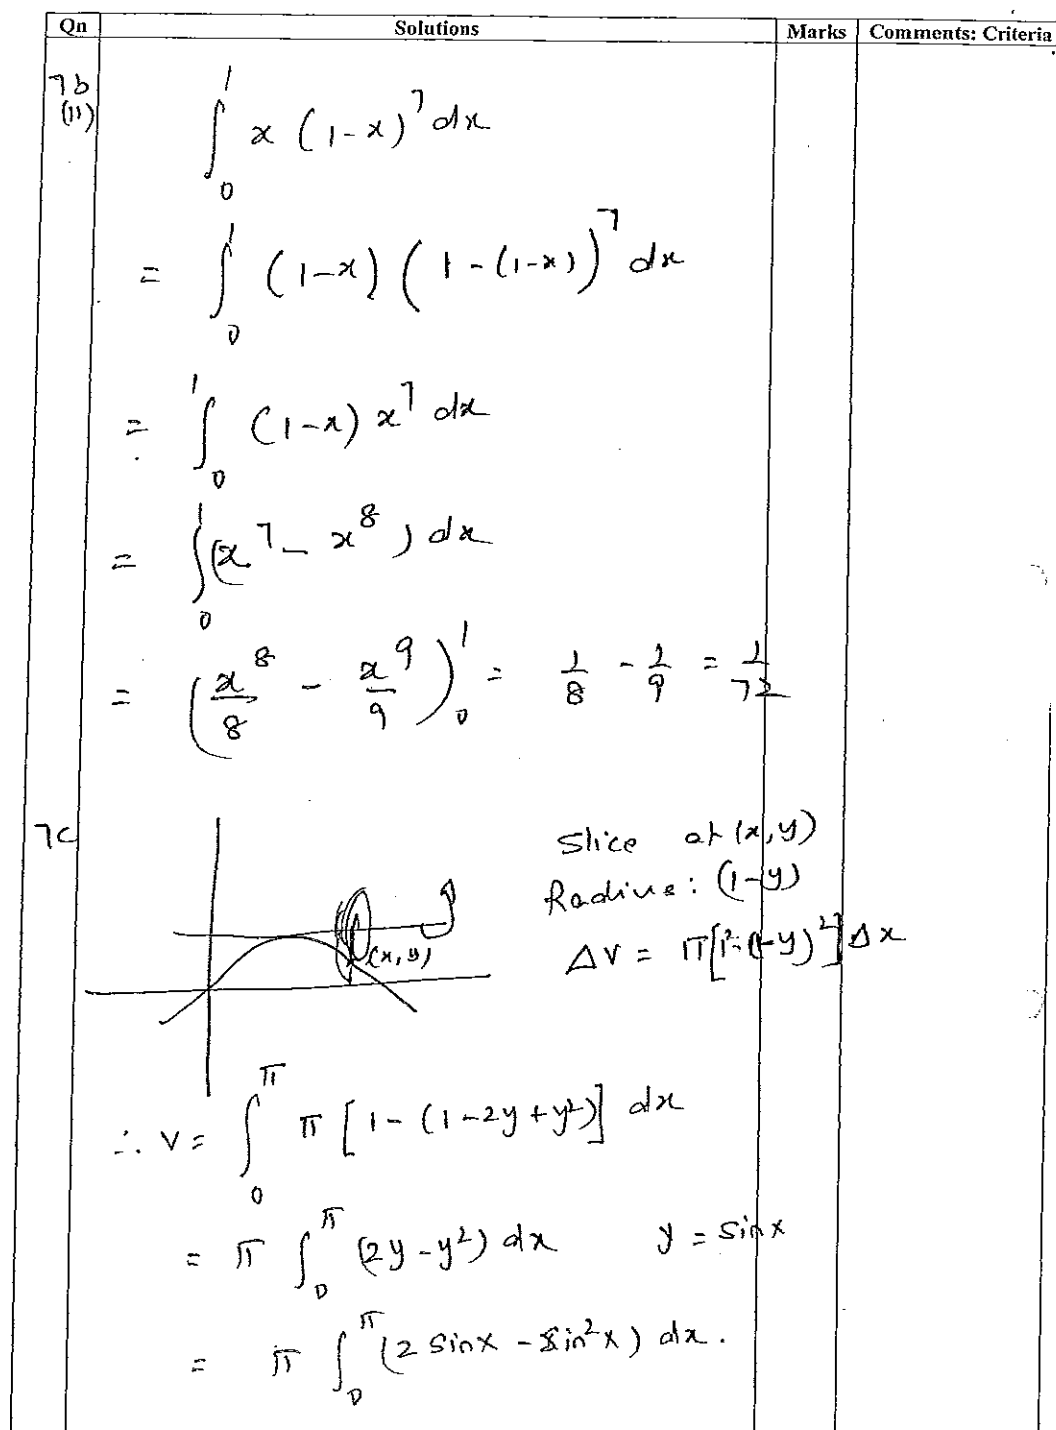 Qn Solutions Marks Comments: Criteria
7b
(ii)
∫₀¹ x (1-x)⁷ dx
= ∫₀¹ (1-x) (1-(1-x))⁷ dx
= ∫₀¹ (1-x) x⁷ dx
= ∫₀¹ (x⁷ - x⁸) dx
= (x⁸/8 - x⁹/9)₀¹ = 1/8 - 1/9 = 1/72
7c
Slice at (x,y)
Radius: (1-y)
(x,y)
ΔV = π[1²-(1-y)²]Δx
∴ V = ∫₀^π π [1-(1-2y+y²)] dx
= π ∫₀^π (2y-y²) dx y = sinx
= π ∫₀^π (2 sinx - sin²x) dx.